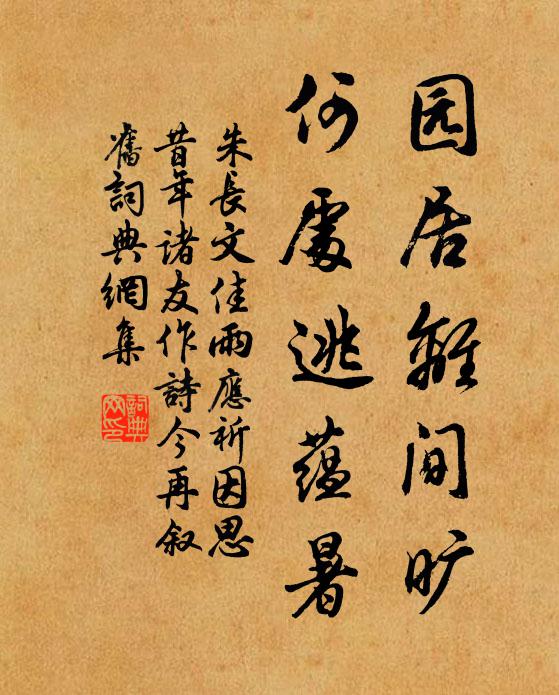 园居雖间旷
何處逃蕴暑
朱長文佳雨應祈因思
昔年諸友作詩今再叙
舊詞典網集
詞典
网印